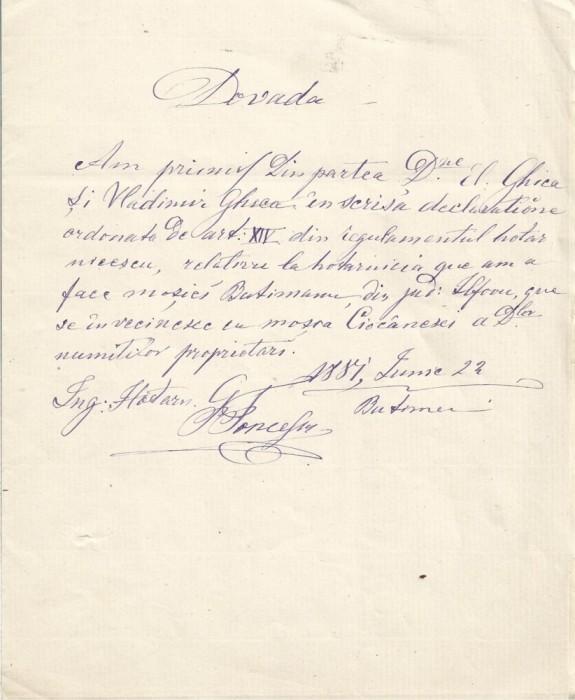 Dovada
Am primit din partea D.ne El. Ghica
și Vladimir Ghica înscrisă declarațiune
ordonata de art: XIV din regulamentul hotar
nicescu, relativu la hotarnicia que am a
face moșiei Butimanu, din jud: Ilfovu, que
se învecinesc cu moșia Ciocănesci a D.lor
numitilor proprietari.
1887, Iunie 22
Ing: Hotarn.